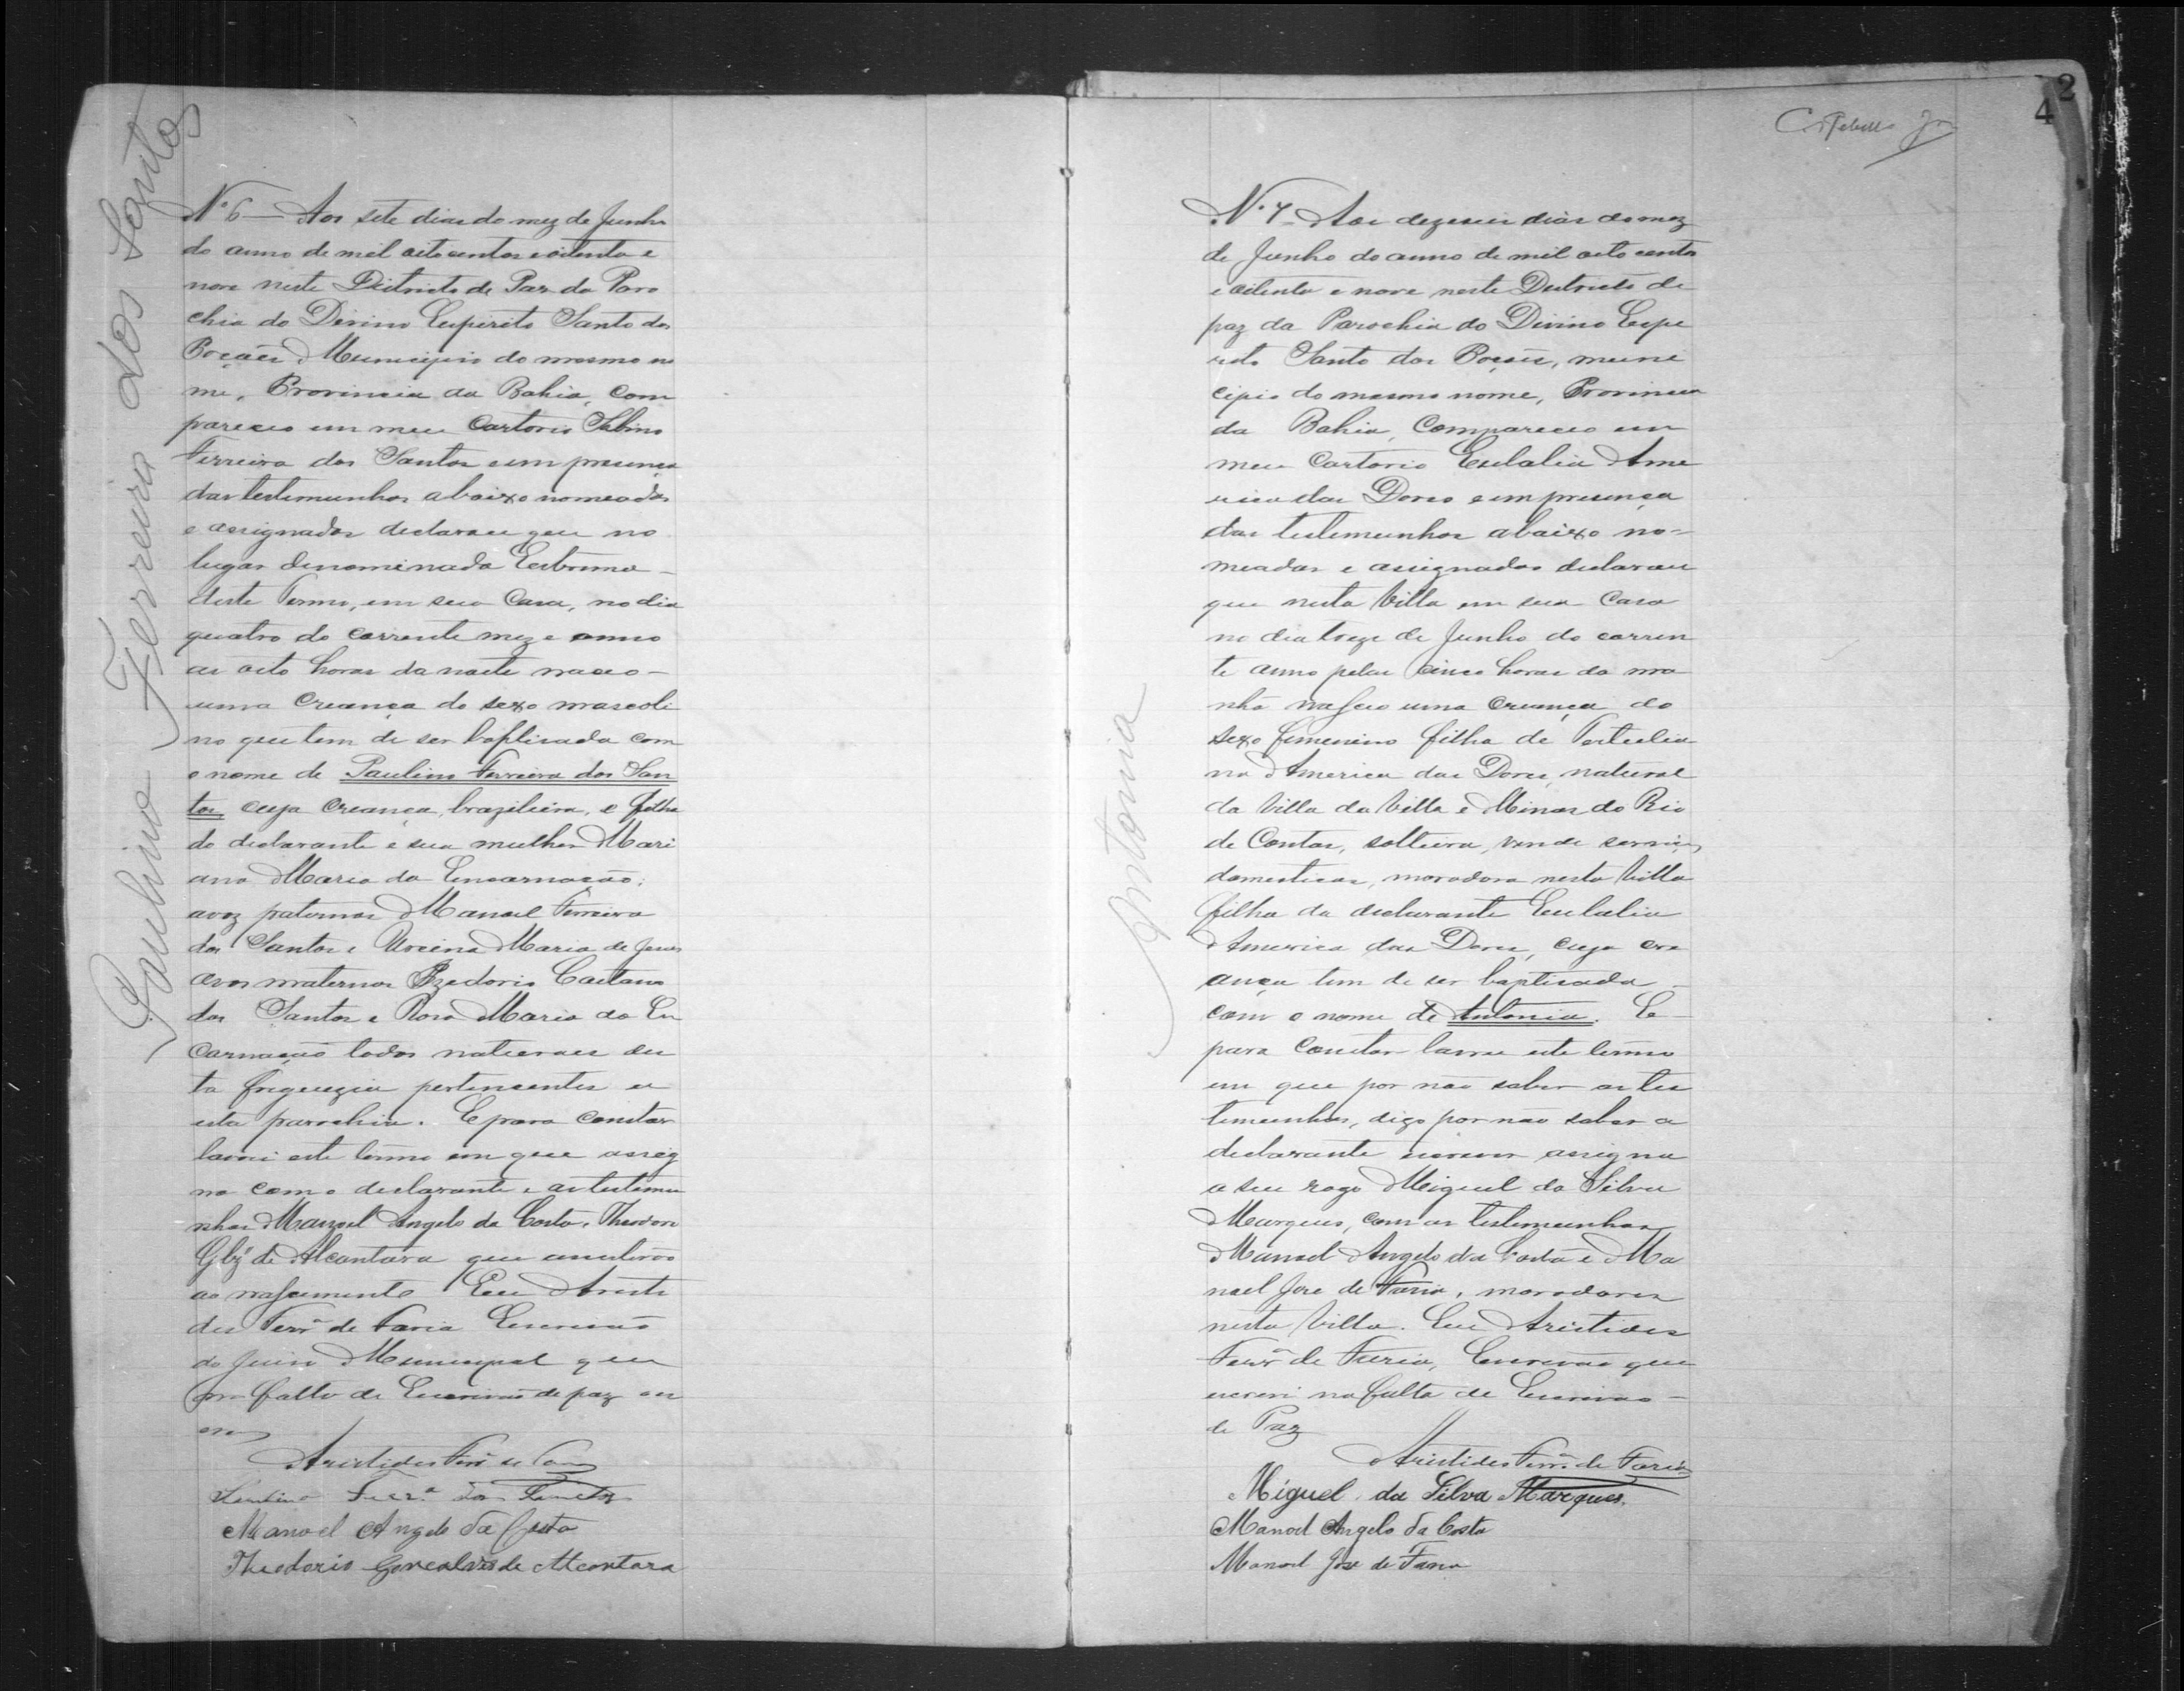 Paulino Ferreira dos Santos
Nº 6 — Aos sete dias do mez de Junho
do anno de mil oito centos e oitenta e
nove neste Districto de Paz da Paro
chia do Divino Espirito Santo dos
Poções Municipio do mesmo no
me, Provincia da Bahia, com
pareceo em meu Cartorio Sabino
Ferreira dos Santos e em presença
das testemunhas abaixo nomeadas
e assignadas declarou que no
lugar denominado
deste Termo, em sua Casa, no dia
quatro do corrente mez e anno
as oito horas da noite nasceo —
uma Creança do sexo mascoli
no que tem de ser baptisada com
o nome de Paulino Ferreira dos San
tos, cuja Creança, brazileira, é filha
do declarante e sua mulher Mari
ana Maria da Encarnação;
avoz paternos Manoel Ferreira
dos Santos e Ursina Maria de Jesus
avos maternos Izedorio Caetano
dos Santos e Rosa Maria da En
carnação todos naturaes des
ta freguezia pertencentes a
esta parochia. E para constar
lavrei este termo em que assig
no com o declarante e as testemu
nhas Manoel Angelo da Costa, Theodorio
Glz de Alcantara que assistirão
ao nascimento Eu Aristi
des Ferrª de Faria Escrivão
do Juizo Municipal que
na falta de Escrivão de paz es
crevi
Aristides Ferrª de Faria
Ferrª dos Santos
Manoel Angelo da Costa
Theodorio Goncalves de Alcantara
2
4
C. Rebello Jor
Antonia
Nº 7 — Aos dezeseis dias do mez
de Junho do anno de mil oito centos
e oitenta e nove neste Districto de
paz da Parochia do Divino Espi
rito Santo dos Poções, muni
cipio do mesmo nome, Provincia
da Bahia, Compareceo em
meu Cartorio Eulalia Ame
rica das Dores e em presença
das testemunhas abaixo no=
meadas e assignadas declarou
que nesta Villa em sua Casa
no dia treze de Junho do corren
te anno pelas cinco horas da ma
nhã nasceo uma Creança do
sexo femenino filha de Tertulia
na America das Dores, natural
da Villa da Villa e Minas do Rio
de Contas, solteira, vive de serviços
domesticos, moradora nesta Villa
filha da declarante Eulalia
America das Dores, cuja cre
ança tem de ser baptisada —
com o nome de Antonia. E —
para Constar lavrei este termo
em que por não saber as tes
temunhas, digo por não saber a
declarante escrever assigna
a seu rogo Miguel da Silva
Marques, com as testemunhas
Manoel Angelo da Costa e Ma
noel José de Faria, moradores
nesta Villa. Eu Aristides
Ferrª de Faria, Escrivão que
escrevi na falta de Escrivão —
de Paz
Aristides Ferrª de Faria
Miguel da Silva Marques.
Manoel Angelo da Costa
Manoel José de Faria